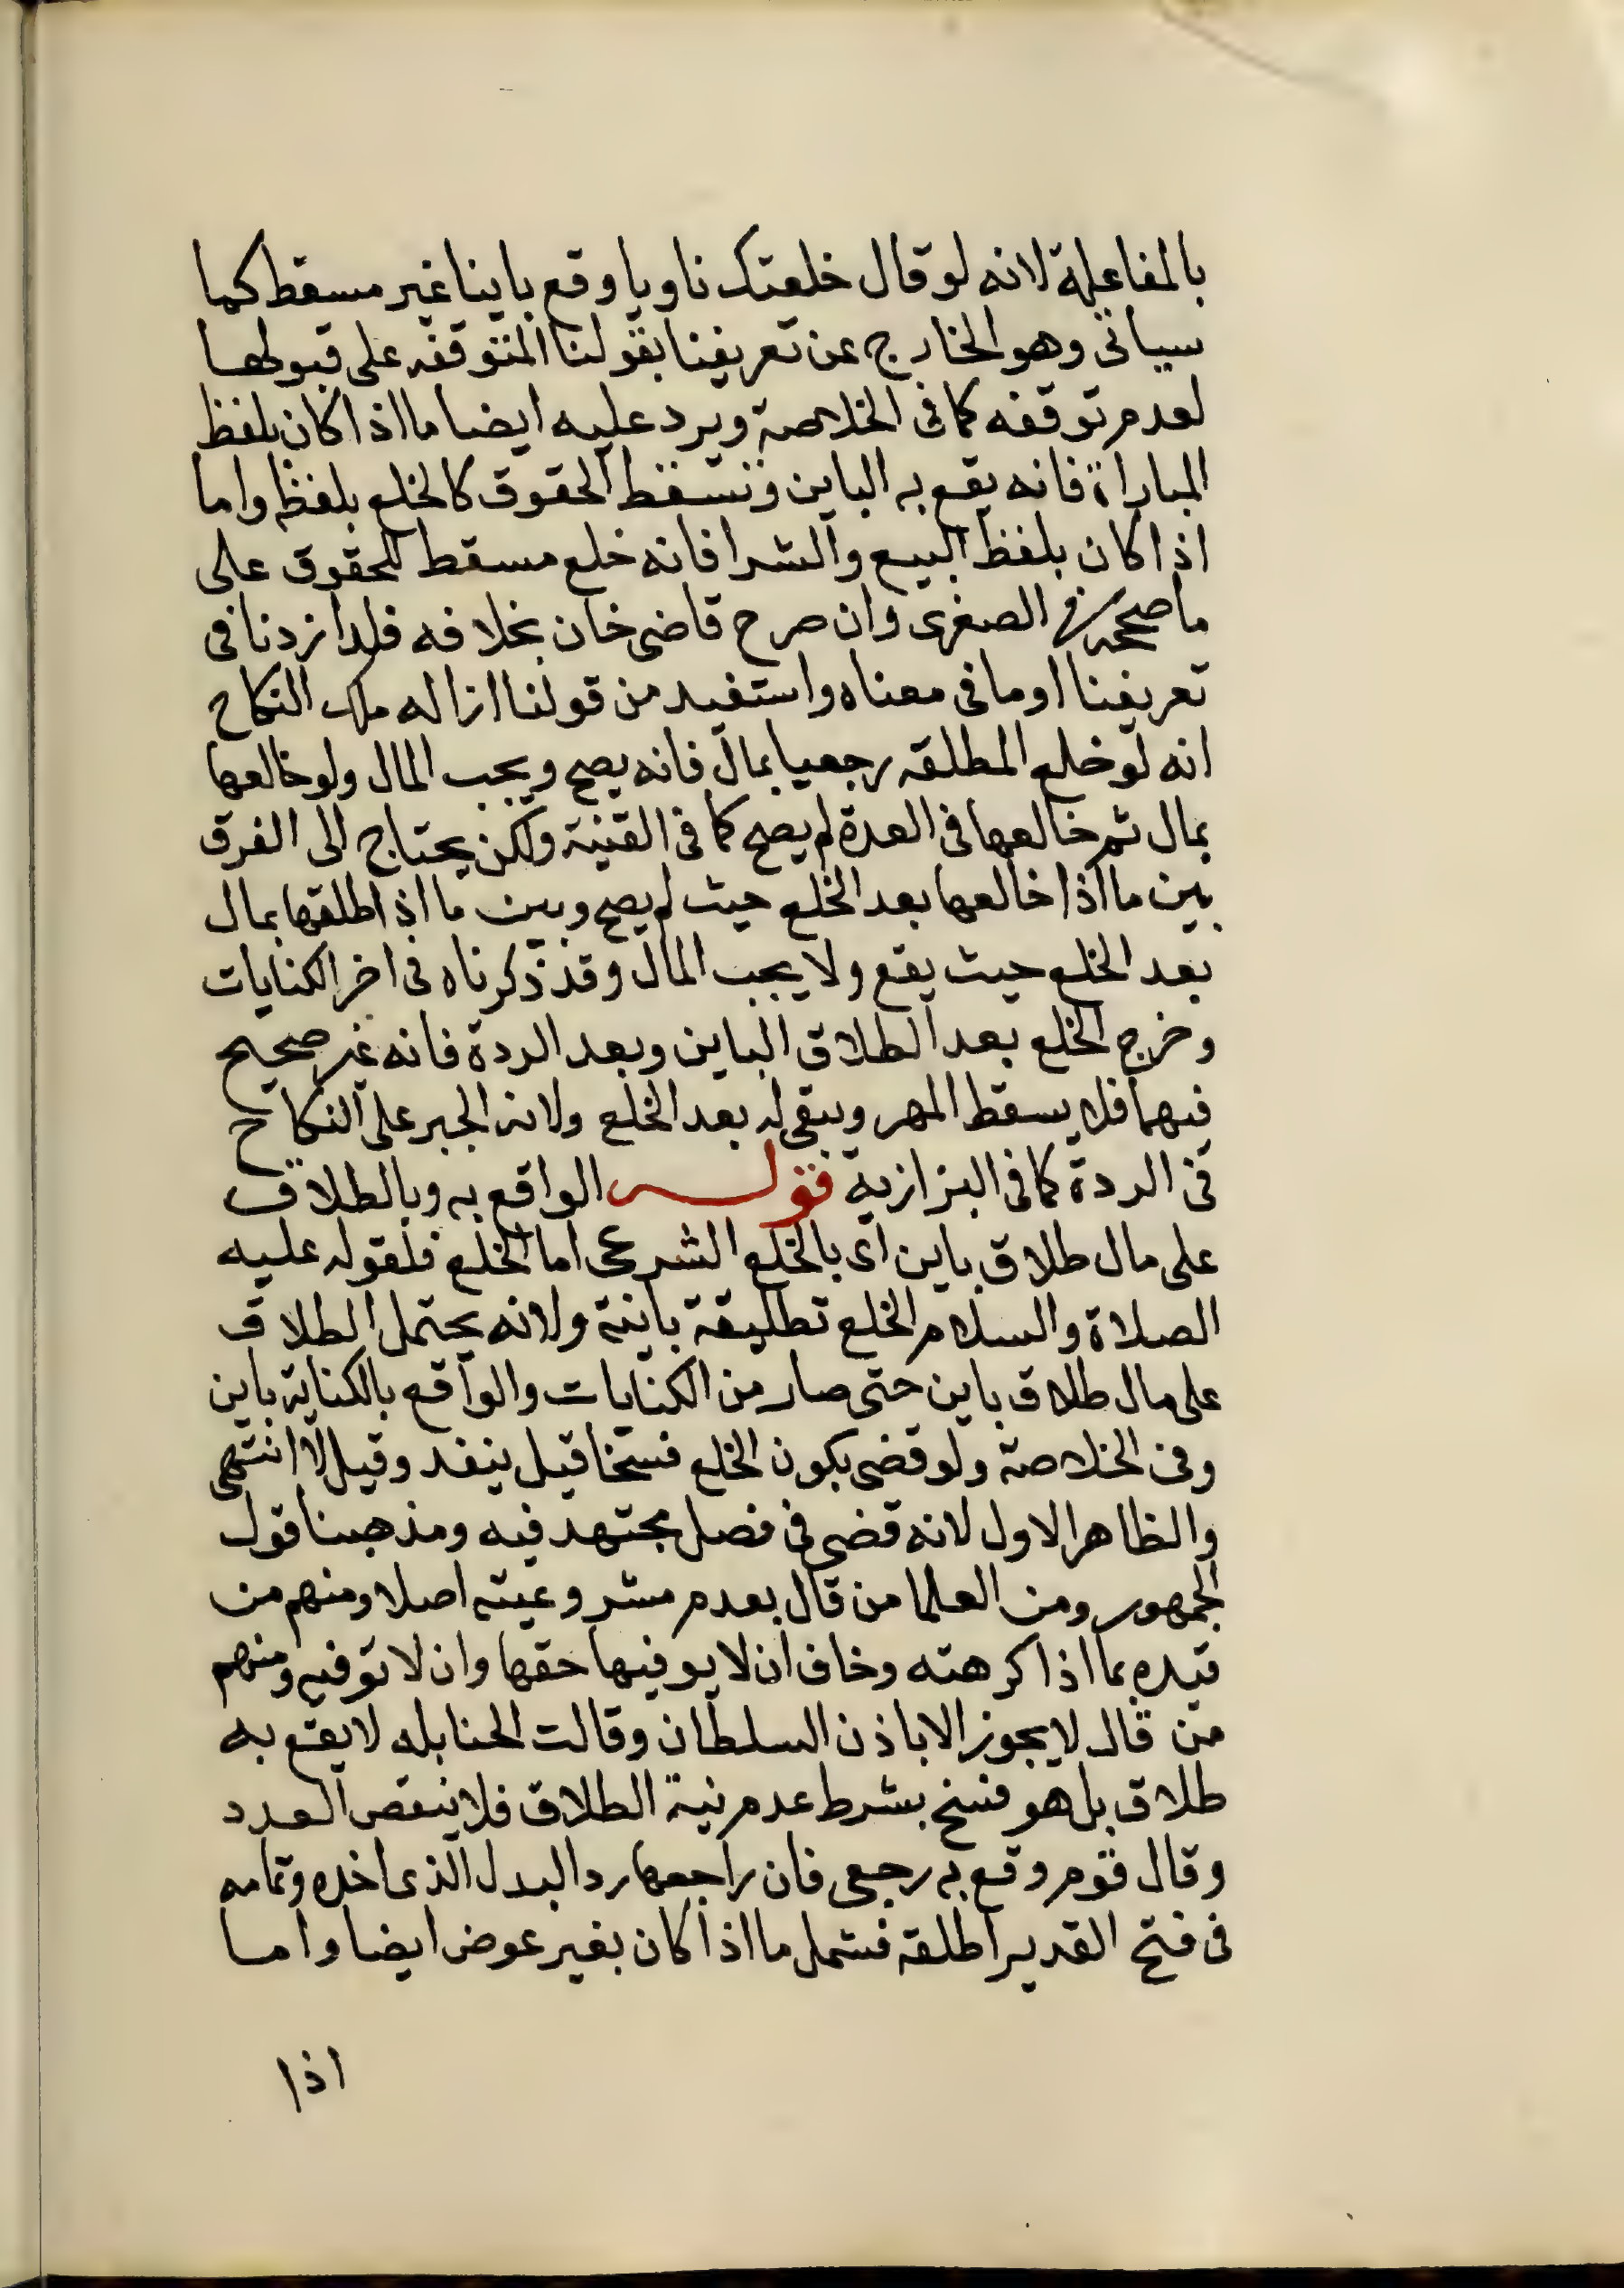 بالمفاعلة لانه لو قال خلعتك ناويا وقع باينا غير مسقط كما
سياتى وهو الخارج عن تعريفنا بقولنا المتوقفه على قبولها
لعدم توقفه كما فى الخلاصة ويرد عليه ايضا ما اذا كان بلفظ
المباراة فانه يقع به الباين وتسقط الحقوق كالخلع بلفظه واما
اذا كان بلفظ البيع والشرا فانه خلع مسقط للحقوق على
ما صححه فى الصغرى وان صرح قاضى خان بخلافه فلذا زدنا فى
تعريفنا او ما فى معناه واستفيد من قولنا ازاله ملك النكاح
انه لو خلع المطلقه رجعيا بمال فانه يصح ويجب المال ولو خالعها
بمال ثم خالعها فى العدة لم يصح كما فى القنية ولكن يحتاج الى الفرق
بين ما اذا خالعها بعد الخلع حيث لم يصح وبين ما اذا طلقها بمال
بعد الخلع حيث يقع ولا يجب المال وقد ذكرناه فى اخر الكنايات
وخرج الخلع بعد الطلاق الباين وبعد الردة فانه غير صحيح
فيهما فلا يسقط المهر ويبقى له بعد الخلع ولاية الجبر على النكاح
فى الردة كما فى البزازية قوله الواقع به وبالطلاق
على مال طلاق باين اى بالخلع الشرعى اما الخلع فلقوله عليه
الصلاة والسلام الخلع تطليقة باينة ولانه يحتمل الطلاق
على مال طلاق باين حتى صار من الكنايات والواقع بالكناية باين
وفى الخلاصة ولو قضى بكون الخلع فسخا قيل ينفد وقيل لا انتهى
والظاهر الاول لانه قضى فى فصل مجتهد فيه ومذهبنا قول
الجمهور ومن العلما من قال بعدم مشروعيته اصلا ومنهم من
قيده بما اذا كرهته وخاف ان لا يوفيها حقها وان لا توفيه ومنهم
من قال لا يجوز الا باذن السلطان وقالت الحنابله لا يقع به
طلاق بل هو فسخ بشرط عدم نية الطلاق فلا ينقص العدد
وقال قوم وقع به رجعى فان راجعها رد البدل الذى اخده وتمامه
فى فتح القدير اطلقه فشمل ما اذا كان بغير عوض ايضا واما
اذا